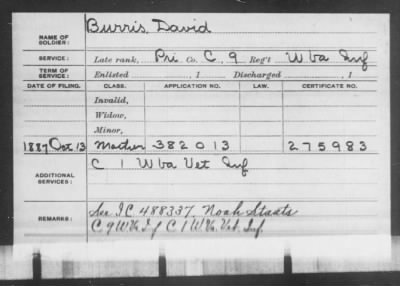 Burris, David
NAME OF SOLDIER:
SERVICE: Late rank, Pri Co. C, 9 Reg't W Va Inf
TERM OF SERVICE: Enlisted , 1 Discharged , 1
DATE OF FILING. CLASS. APPLICATION NO. LAW. CERTIFICATE NO.
Invalid,
Widow,
Minor,
1887 Oct 13 Mother 382013 275983
C 1 W Va Vet Inf
ADDITIONAL SERVICES:
REMARKS: See IC 488337 Noah Staats
C 9 W Va Inf C 1 W Va Vet. Inf.